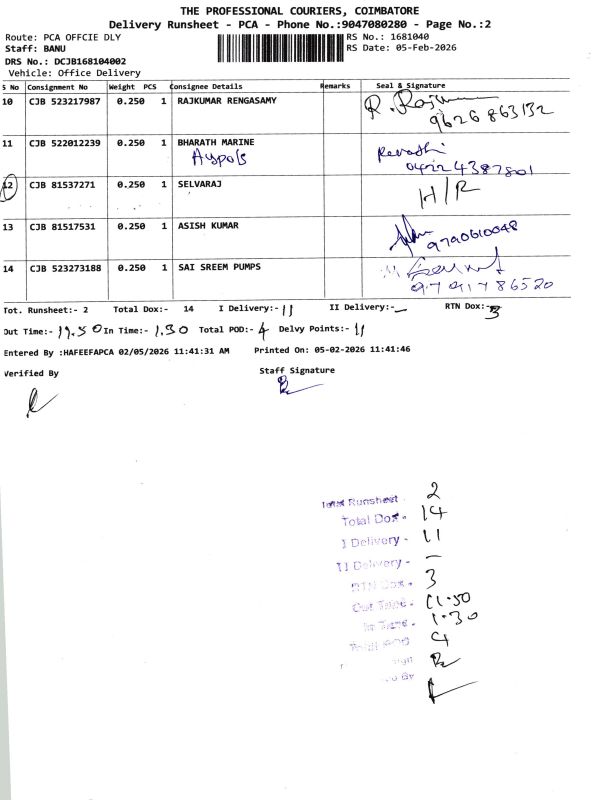 THE PROFESSIONAL COURIERS, COIMBATORE
Delivery Runsheet - PCA - Phone No.:9047080280 - Page No.:2
Route: PCA OFFCIE DLY
RS No.: 1681040
Staff: BANU
RS Date: 05-Feb-2026
DRS No.: DCJB168104002
Vehicle: Office Delivery
S No Consignment No Weight PCS Consignee Details Remarks Seal & Signature
10 CJB 523217987 0.250 1 RAJKUMAR RENGASAMY R. Rajkumar
9626863132
11 CJB 522012239 0.250 1 BHARATH MARINE Revathi
0422 4387801
12 CJB 81537271 0.250 1 SELVARAJ H/R
13 CJB 81517531 0.250 1 ASISH KUMAR
9790610048
14 CJB 523273188 0.250 1 SAI SREEM PUMPS
9791786520
Tot. Runsheet:- 2 Total Dox:- 14 I Delivery:- 11 II Delivery:- — RTN Dox:- 3
Out Time:- 11.50 In Time:- 1.30 Total POD:- 4 Delvy Points:- 11
Entered By :HAFEEFAPCA 02/05/2026 11:41:31 AM Printed On: 05-02-2026 11:41:46
Verified By Staff Signature
Total Runsheet - 2
Total Dox - 14
I Delivery - 11
II Delivery - —
RTN Dox - 3
Out Time - 11.50
In Time - 1.30
Total POD 4